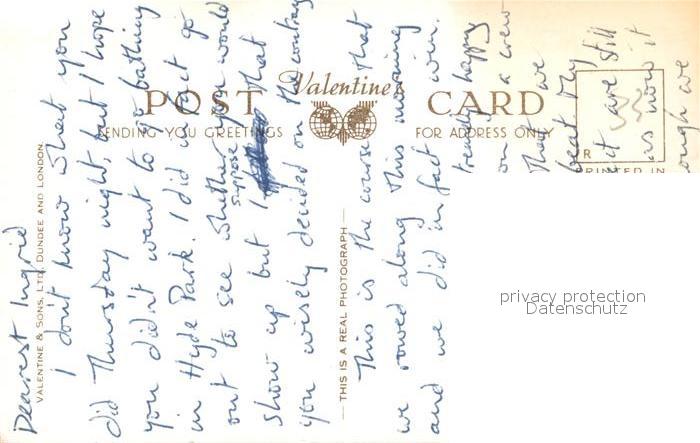 Dearest Ingrid
I don't know what you
did Thursday night, but I hope
you didn't want to go bathing
in Hyde Park. I did not go
out to see whether you would
show up but I suppose that
you wisely decided on the contrary
This is the course that
we rowed along this morning
and we did in fact win.
happy
on a crew
that we
beat my
it are still
as now it
ough we
Valentine's
POST CARD
SENDING YOU GREETINGS
FOR ADDRESS ONLY
VALENTINE & SONS, LTD. DUNDEE AND LONDON
THIS IS A REAL PHOTOGRAPH
R
PRINTED IN
privacy protection
Datenschutz